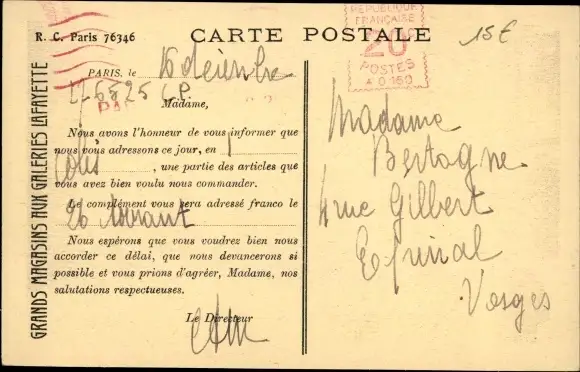 R. C. Paris 76346
CARTE POSTALE
15€
RÉPUBLIQUE
FRANÇAISE
20
POSTES
A 0160
GRANDS MAGASINS AUX GALERIES LAFAYETTE
PARIS, le
Madame,
Nous avons l'honneur de vous informer que
nous vous adressons ce jour, en 1
Colis, une partie des articles que
vous avez bien voulu nous commander.
Le complément vous sera adressé franco le
26 courant
Nous espérons que vous voudrez bien nous
accorder ce délai, que nous devancerons si
possible et vous prions d'agréer, Madame, nos
salutations respectueuses.
Le Directeur
Madame
Bertogne
4 rue Gilbert
Epinal
Vosges